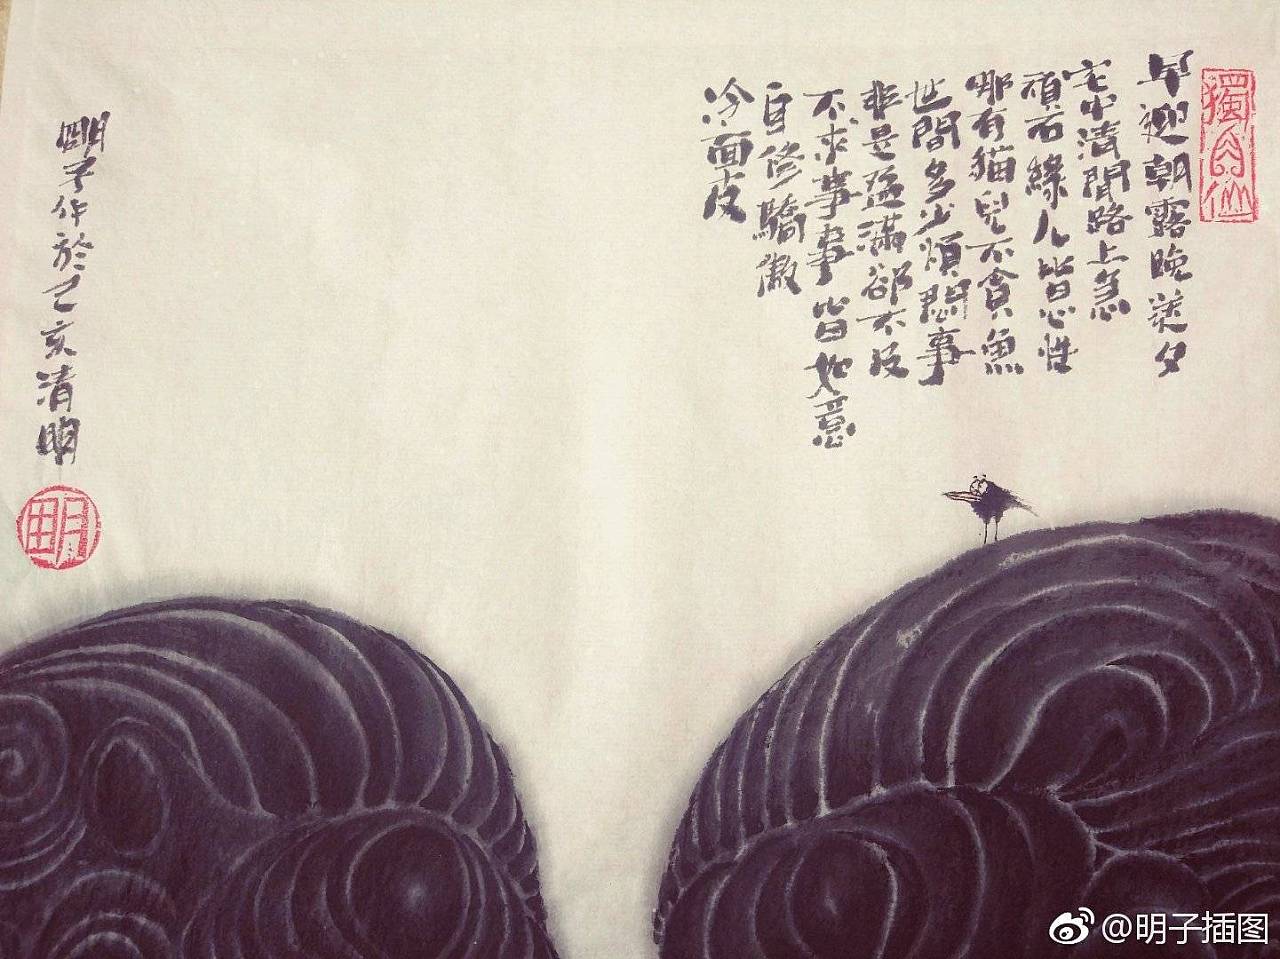 獨自仙
早迎朝露晚送夕
宅中清閒路上急
頑石緣人皆心性
哪有貓兒不貪魚
世間多少煩悶事
非是盈滿卻不及
不求事事皆如意
自修驕傲
冷面皮
明子作於己亥清明
明
@明子插图